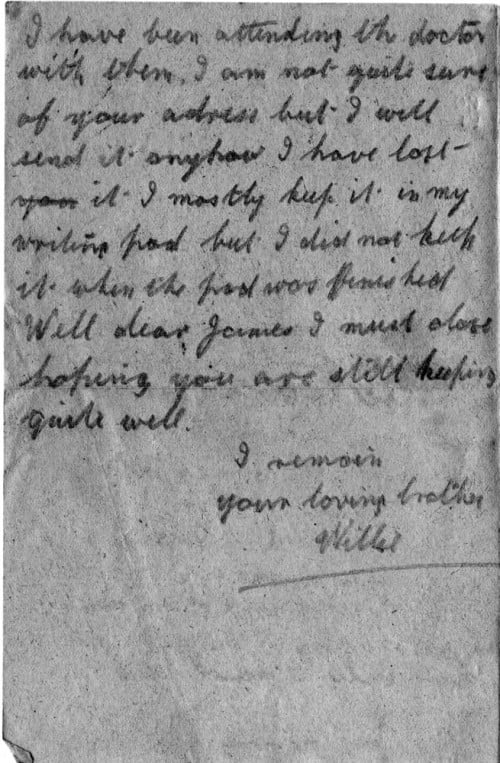 I have been attending th doctor
with them. I am not quite sure
of your adress but I will
send it anyhow I have lost
you it I mostly keep it in my
writing pad but I did not keep
it when the pad was finished
Well dear James I must close
hoping you are still keeping
quite well.
I remain
your loving brother
Willie